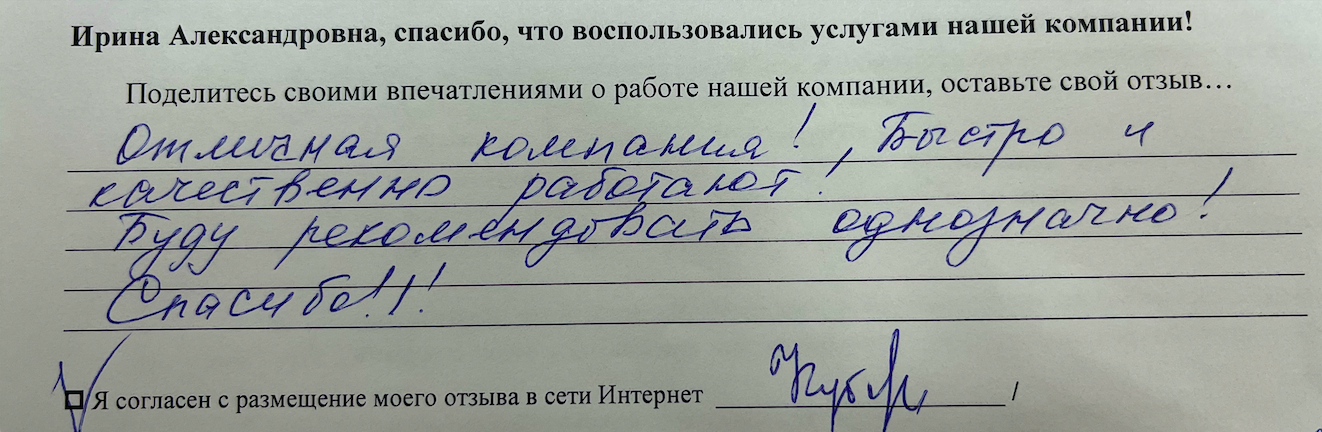 Ирина Александровна, спасибо, что воспользовались услугами нашей компании!
Поделитесь своими впечатлениями о работе нашей компании, оставьте свой отзыв…
Отличная компания!, Быстро и
качественно работают!
Буду рекомендовать однозначно!
Спасибо!!!
Я согласен с размещение моего отзыва в сети Интернет /